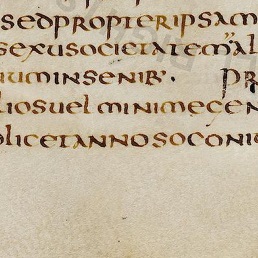 sedpropteripsam
sexusocietatem al
iuminsenib·. pr
liosuelminimecen
licetannosoconiu